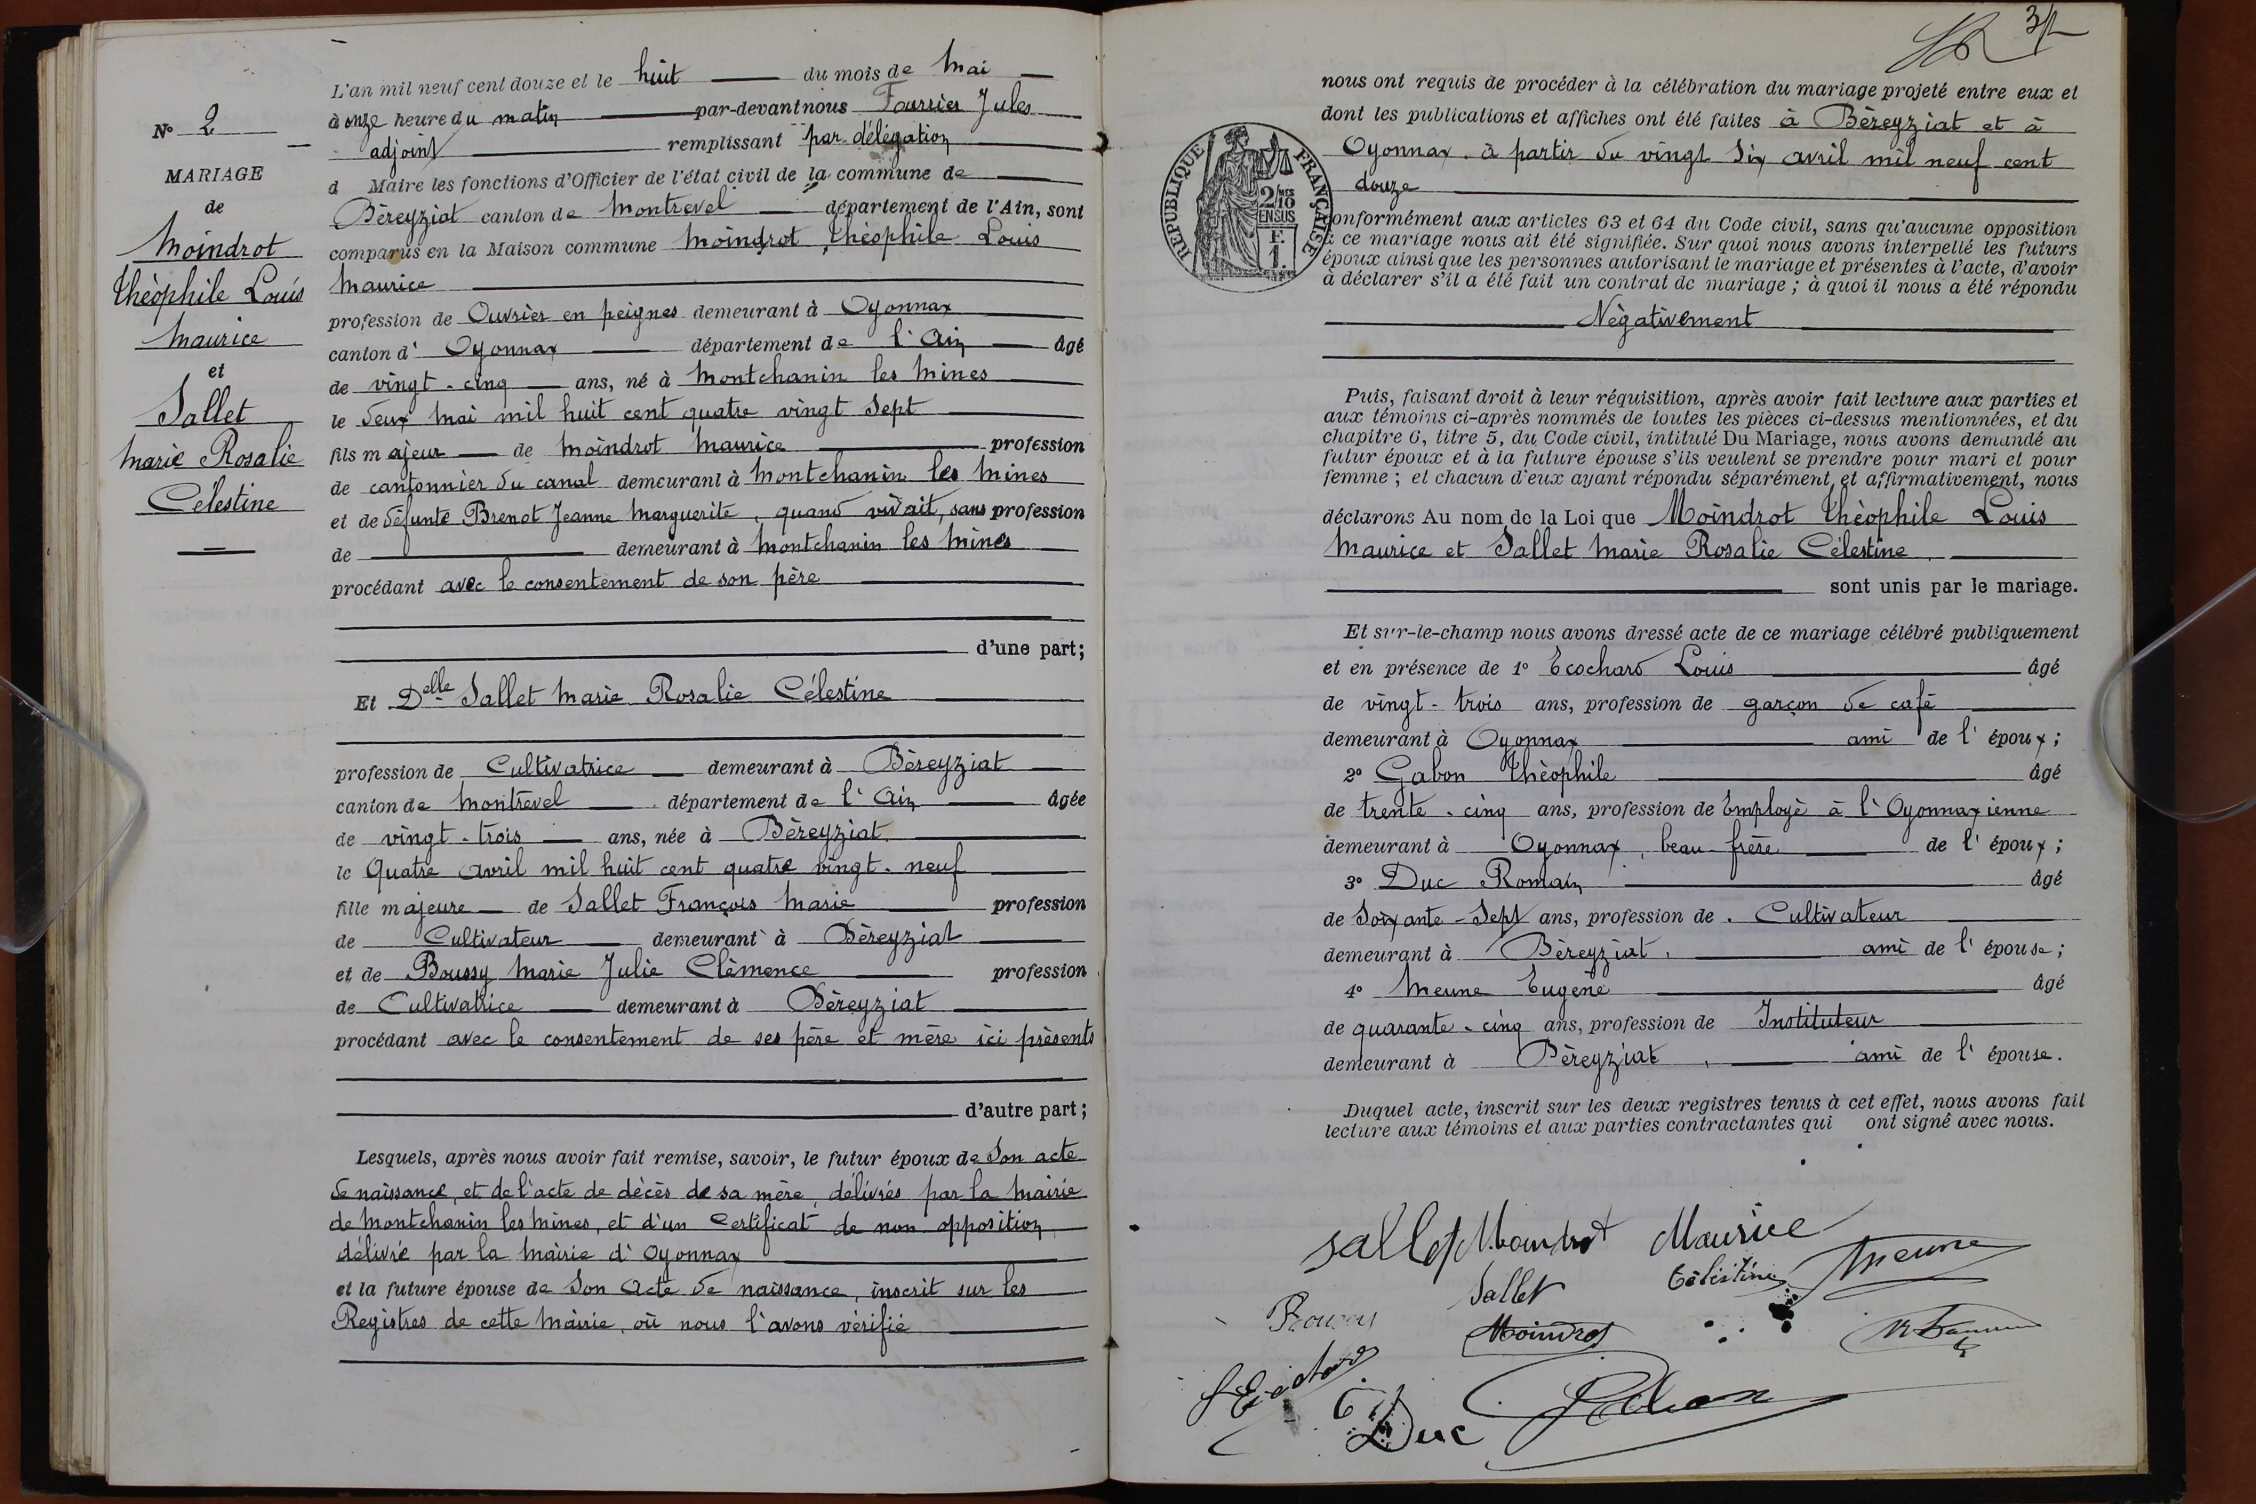 N° 2
MARIAGE
de
Moindrot
Théophile Louis
Maurice
et
Sallet
Marie Rosalie
Célestine
L'an mil neuf cent douze et le huit du mois de Mai
à onze heure du matin par-devant nous Fourrier Jules
adjoint remplissant par délégation
d Maire les fonctions d'Officier de l'état civil de la commune de
Béreyziat canton de Montrevel département de l'Ain, sont
comparus en la Maison commune Moindrot Théophile Louis
Maurice
profession de Ouvrier en peignes demeurant à Oyonnax
canton d' Oyonnax département de l'Ain âgé
de vingt-cinq ans, né à Montchanin les Mines
le deux mai mil huit cent quatre vingt sept
fils majeur de Moindrot Maurice profession
de cantonnier du canal demeurant à Montchanin les Mines
et de défunte Brenot Jeanne Marguerite, quand vivait, sans profession
de demeurant à Montchanin les Mines
procédant avec le consentement de son père
d'une part;
Et Delle Sallet Marie Rosalie Célestine
profession de Cultivatrice demeurant à Béreyziat
canton de Montrevel département de l'Ain âgée
de vingt-trois ans, née à Béreyziat
le Quatre avril mil huit cent quatre vingt-neuf
fille majeure de Sallet François Marie profession
de Cultivateur demeurant à Béreyziat
et de Boussy Marie Julie Clémence profession
de Cultivatrice demeurant à Béreyziat
procédant avec le consentement de ses père et mère ici présents
d'autre part;
Lesquels, après nous avoir fait remise, savoir, le futur époux de son acte
de naissance, et de l'acte de décès de sa mère, délivrés par la Mairie
de Montchanin les Mines, et d'un Certificat de non opposition
délivré par la Mairie d'Oyonnax
et la future épouse de son acte de naissance, inscrit sur les
Registres de cette Mairie, où nous l'avons vérifié
nous ont requis de procéder à la célébration du mariage projeté entre eux et
dont les publications et affiches ont été faites à Béreyziat et à
Oyonnax. à partir du vingt six avril mil neuf cent
douze
RÉPUBLIQUE FRANÇAISE
2/10MES
EN SUS
F.
1.
conformément aux articles 63 et 64 du Code civil, sans qu'aucune opposition
à ce mariage nous ait été signifiée. Sur quoi nous avons interpellé les futurs
époux ainsi que les personnes autorisant le mariage et présentes à l'acte, d'avoir
à déclarer s'il a été fait un contrat de mariage; à quoi il nous a été répondu
Négativement
Puis, faisant droit à leur réquisition, après avoir fait lecture aux parties et
aux témoins ci-après nommés de toutes les pièces ci-dessus mentionnées, et du
chapitre 6, titre 5, du Code civil, intitulé Du Mariage, nous avons demandé au
futur époux et à la future épouse s'ils veulent se prendre pour mari et pour
femme; et chacun d'eux ayant répondu séparément, et affirmativement, nous
déclarons Au nom de la Loi que Moindrot Théophile Louis
Maurice et Sallet Marie Rosalie Célestine.
sont unis par le mariage.
Et sur-le-champ nous avons dressé acte de ce mariage célébré publiquement
et en présence de 1° Ecochard Louis âgé
de vingt-trois ans, profession de garçon de café
demeurant à Oyonnax ami de l'époux;
2° Gabon Théophile âgé
de trente-cinq ans, profession de Employé à l'Oyonnaxienne
demeurant à Oyonnax, beau-frère de l'époux;
3° Duc Romain âgé
de Soixante-Sept ans, profession de Cultivateur
demeurant à Béreyziat, ami de l'épouse;
4° Meune Eugène âgé
de quarante-cinq ans, profession de Instituteur
demeurant à Béreyziat, ami de l'épouse.
Duquel acte, inscrit sur les deux registres tenus à cet effet, nous avons fait
lecture aux témoins et aux parties contractantes qui ont signé avec nous.
Sallet Moindrot Maurice
Sallet Célestine Meune
Moindrot
Duc